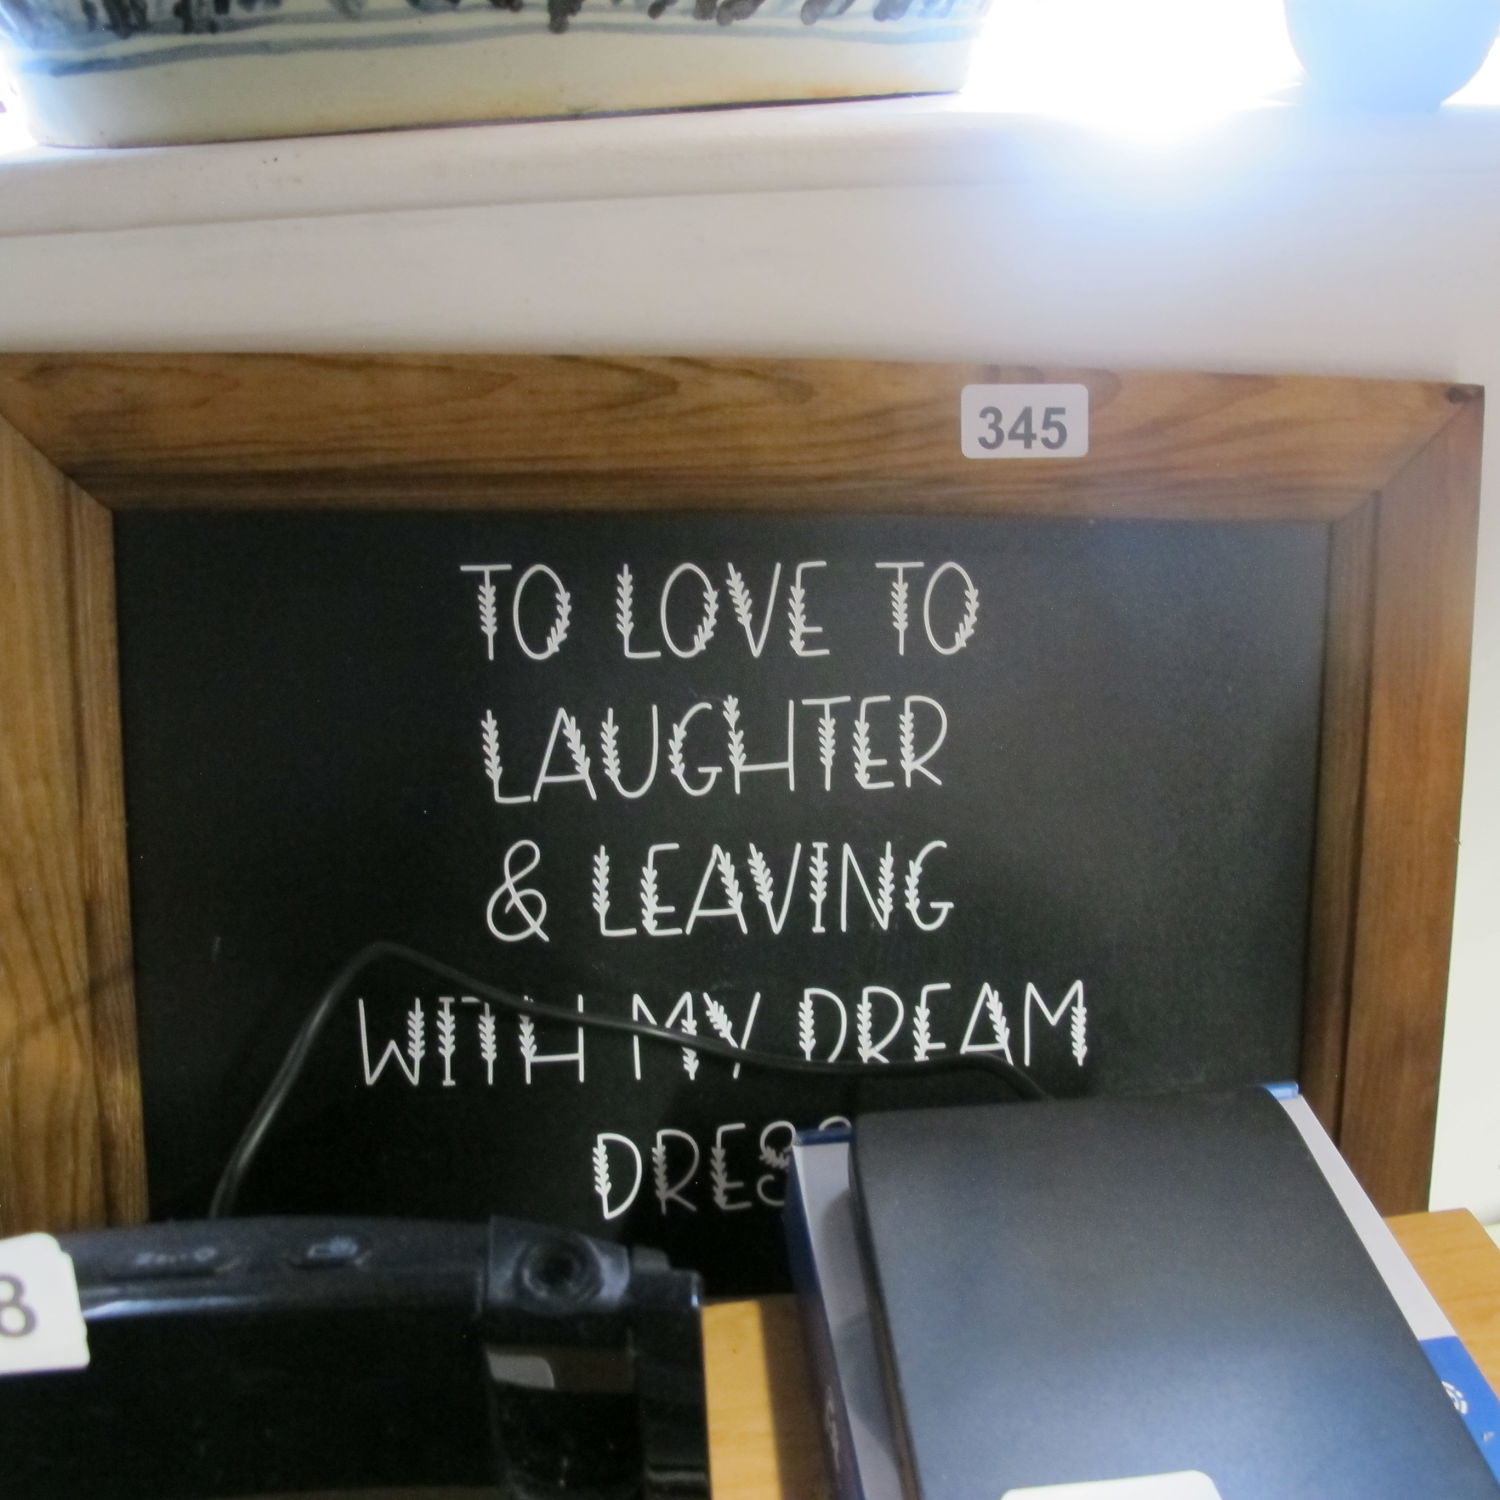 345
TO LOVE TO
LAUGHTER
& LEAVING
WITH MY DREAM
DRESS
8